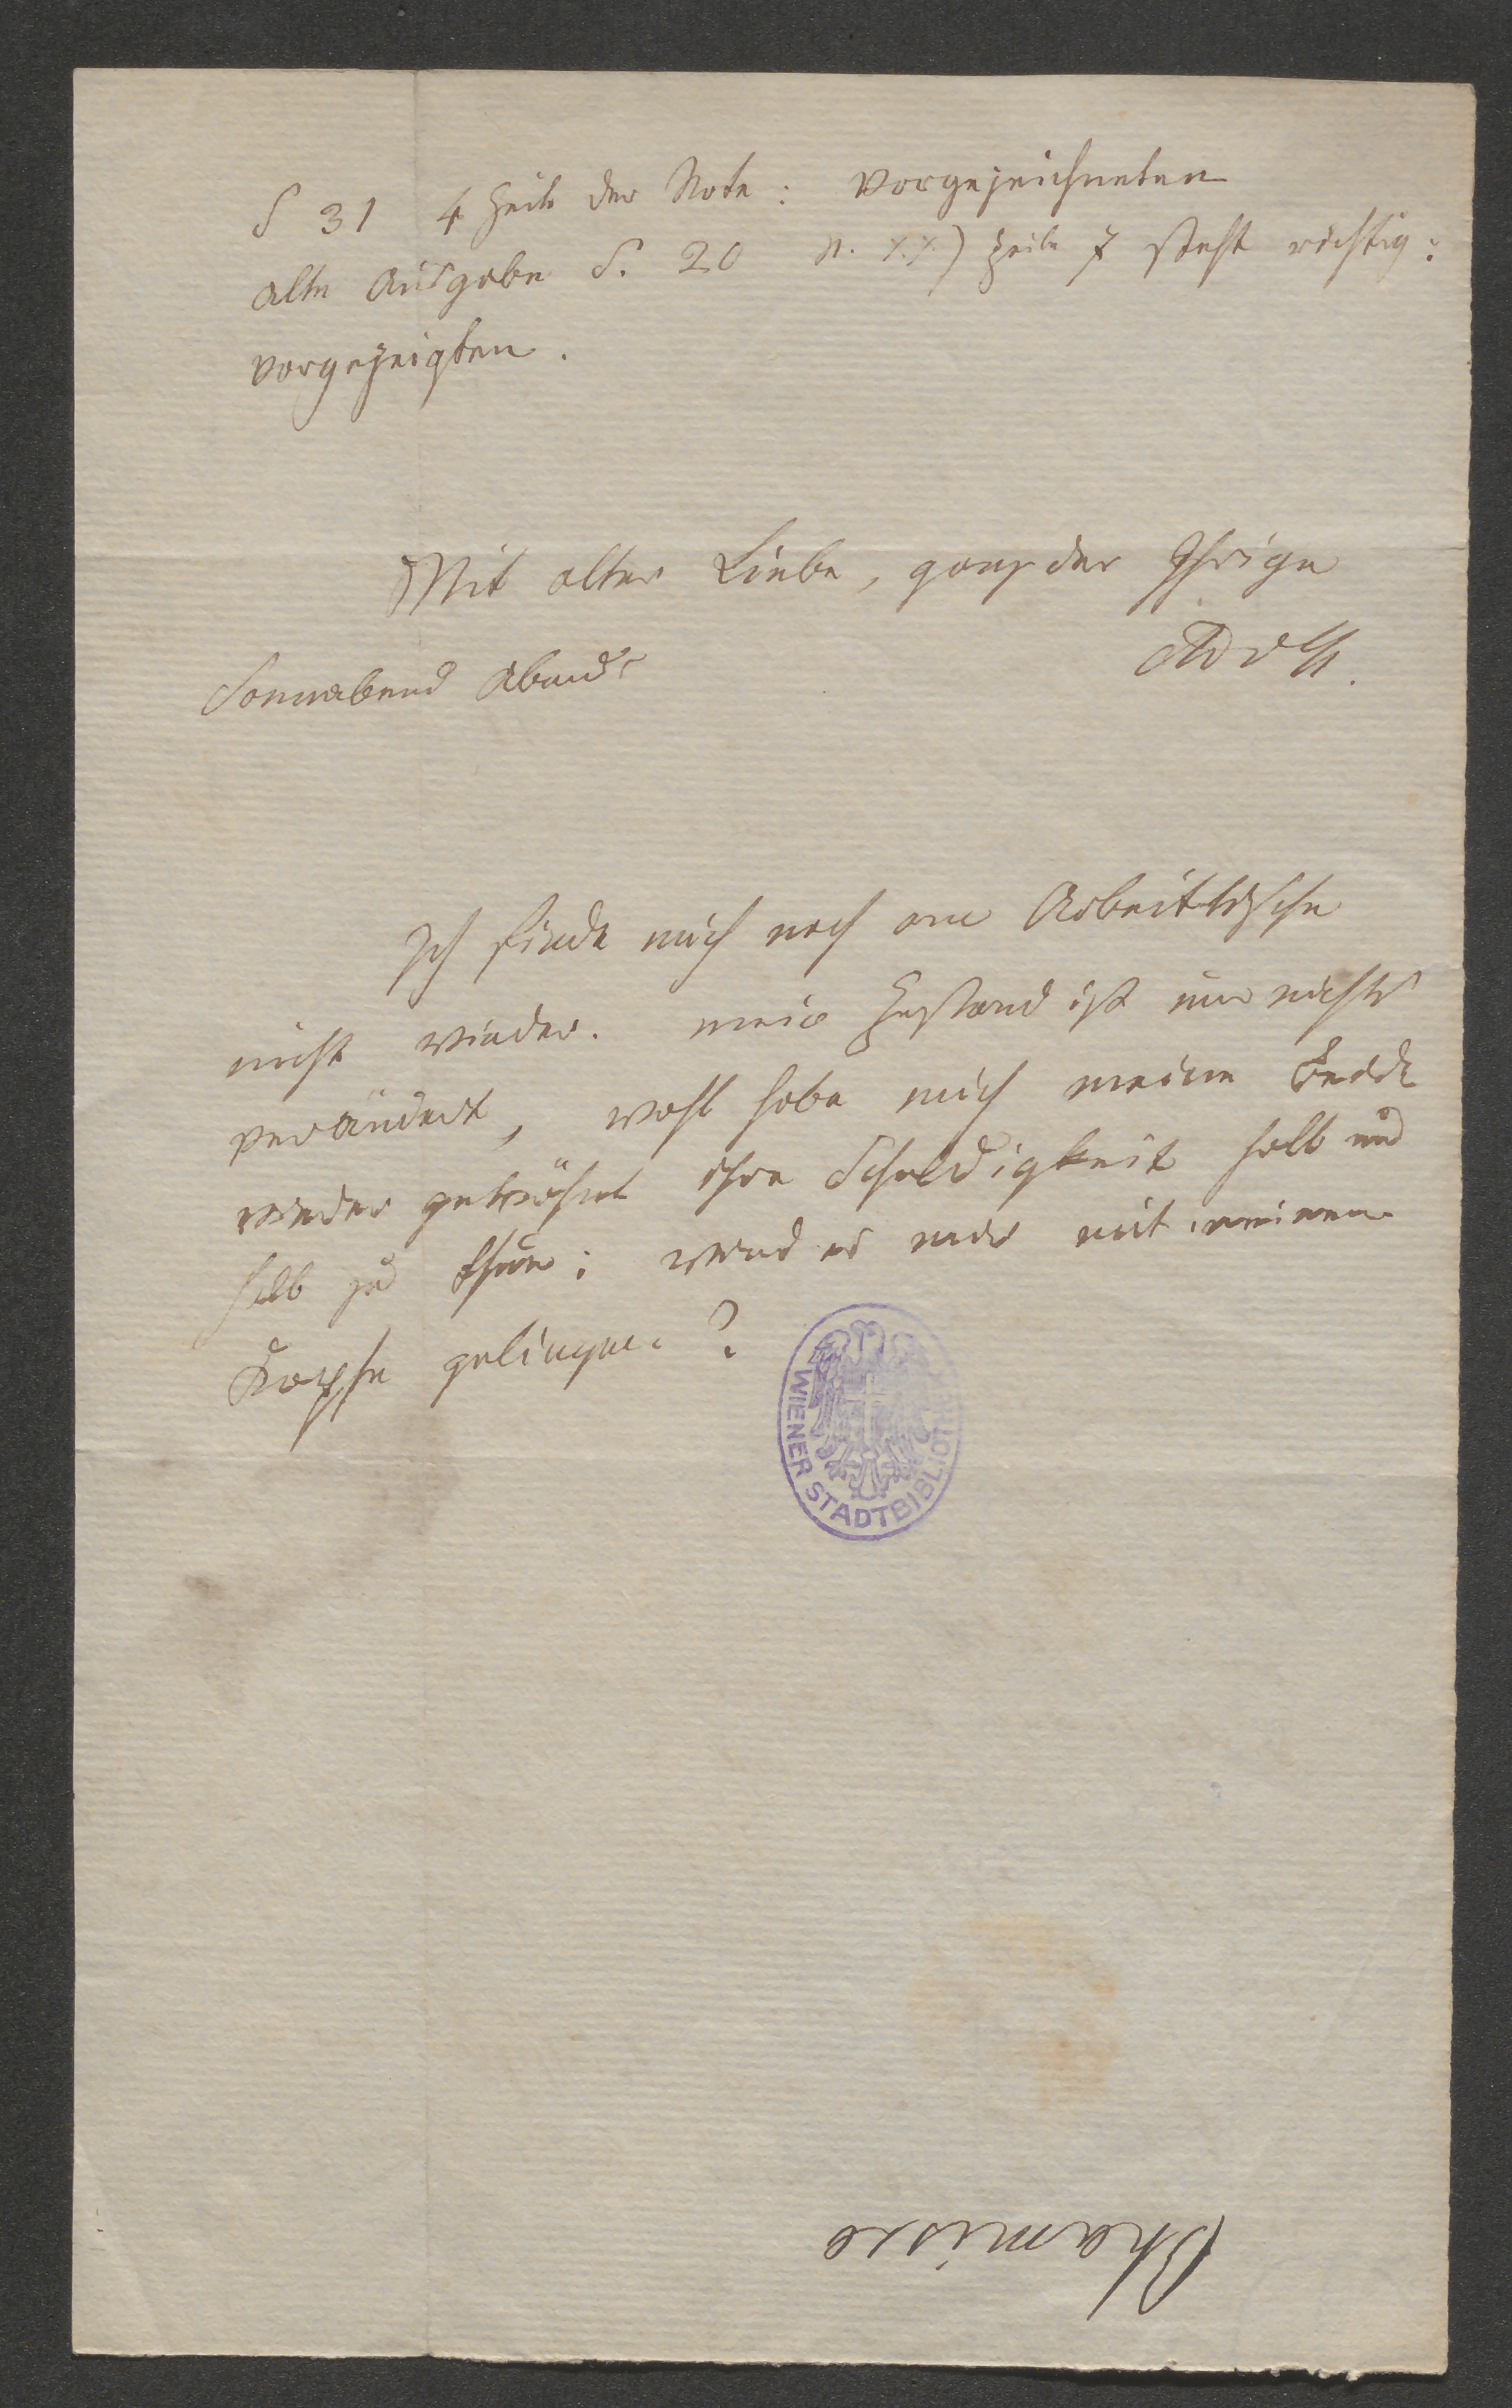 S 31 4 Zeile der Note: vorgezeichneten
alte Ausgabe S. 20 N. xx) Zeile 7 steht richtig:
vorgezeigten.
Mit alter Liebe, ganz der Ihrige
AdvCh.
Sonnabend Abends
Ich finde mich noch am Arbeittische
nicht wieder. mein Zustand ist nun nicht
verändert, wohl habe mich meine
wieder gewöhnt ihre Schuldigkeit halb und
halb zu thun; wird es mir mit meinem
Kopfe gelingen?
WIENER STADTBIBLIOTHEK
Chamisso